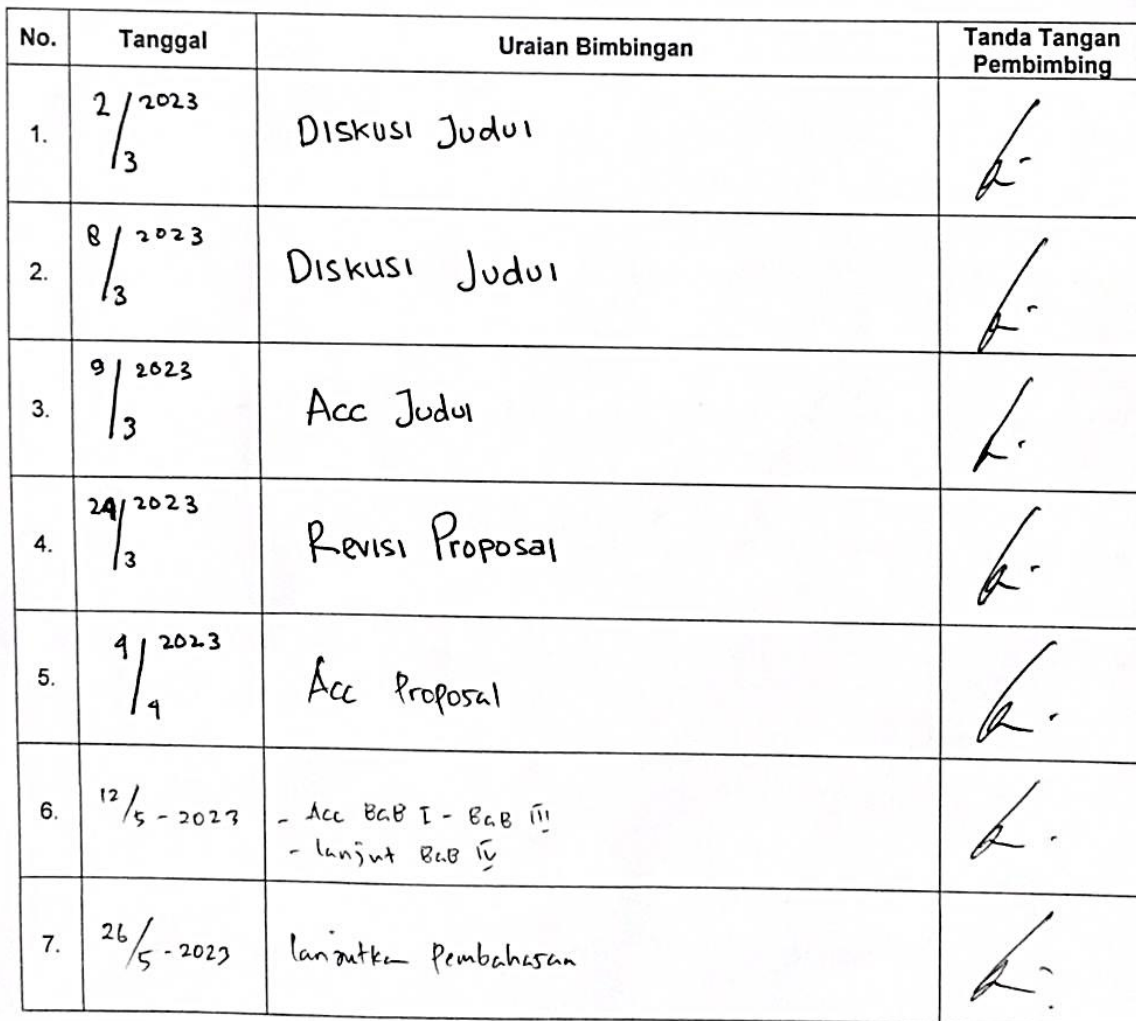 No. Tanggal Uraian Bimbingan Tanda Tangan
Pembimbing
1. 2/3 2023 Diskusi Judul
2. 8/3 2023 Diskusi Judul
3. 9/3 2023 Acc Judul
4. 24/3 2023 Revisi Proposal
5. 4/4 2023 Acc Proposal
6. 12/5 - 2023 - Acc BaB I - BaB III
- lanjut BaB IV
7. 26/5 - 2023 lanjutka Pembahasan